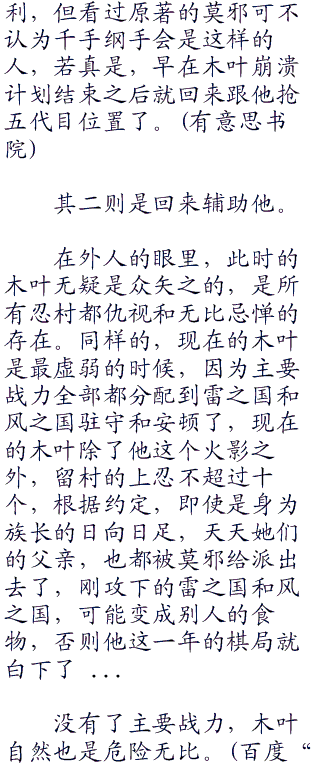 利，但看过原著的莫邪可不
认为千手纲手会是这样的
人，若真是，早在木叶崩溃
计划结束之后就回来跟他抢
五代目位置了。(有意思书
院)
其二则是回来辅助他。
在外人的眼里，此时的
木叶无疑是众矢之的，是所
有忍村都仇视和无比忌惮的
存在。同样的，现在的木叶
是最虚弱的时候，因为主要
战力全部都分配到雷之国和
风之国驻守和安顿了，现在
的木叶除了他这个火影之
外，留村的上忍不超过十
个，根据约定，即使是身为
族长的日向日足，天天她们
的父亲，也都被莫邪给派出
去了，刚攻下的雷之国和风
之国，可能变成别人的食
物，否则他这一年的棋局就
白下了 ...
没有了主要战力，木叶
自然也是危险无比。(百度“